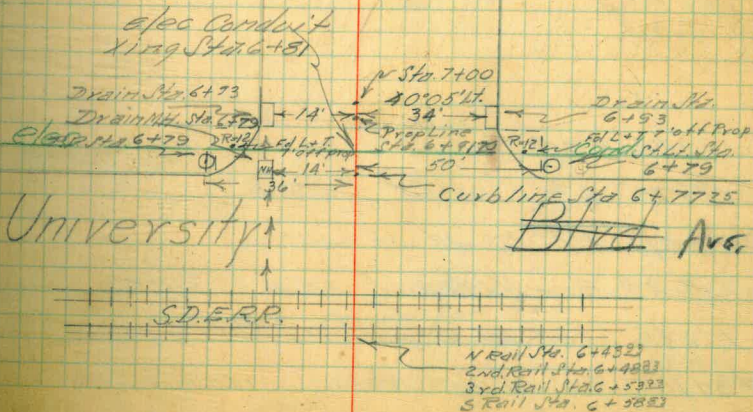 elec Conduit
Xing Sta. 6+81
Drain Sta. 6+93
Drain M.H. Sta. 6+79
elec Sta 6+79
R=12
Fd. L+T
1' off prop
14'
14'
36'
M.H.
N Sta. 7+00
40°05' Lt.
34'
Prop Line
Sta. 6+91.70
50'
Drain Sta.
6+93
R=12
Fd L+T 7' off Prop
Cond St. Lt. Sta.
6+79
Curbline Sta 6+77.25
University
Blvd Ave.
S.D.E.R.R.
N Rail Sta. 6+43.83
2nd. Rail Sta. 6+48.83
3rd. Rail Sta. 6+53.83
S Rail Sta. 6+58.83